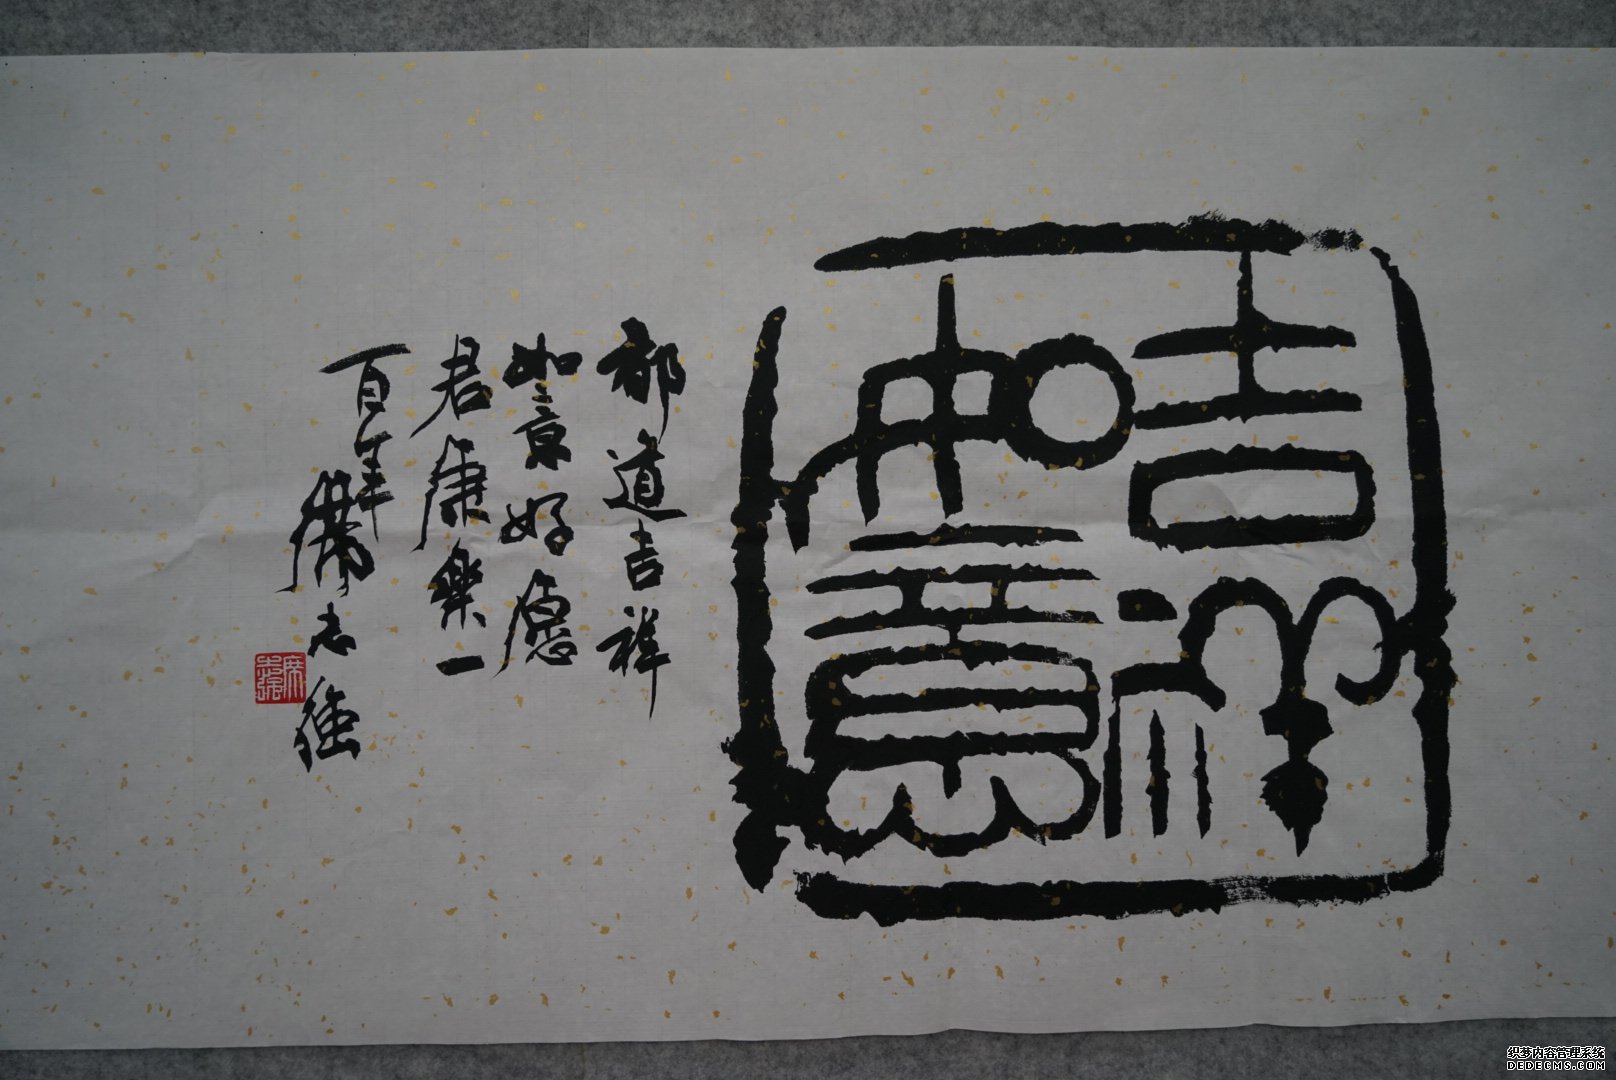 吉祥
如意
都道吉祥
如意好愿
君康樂一
百年
志强
织梦内容管理系统
DEDECMS.COM